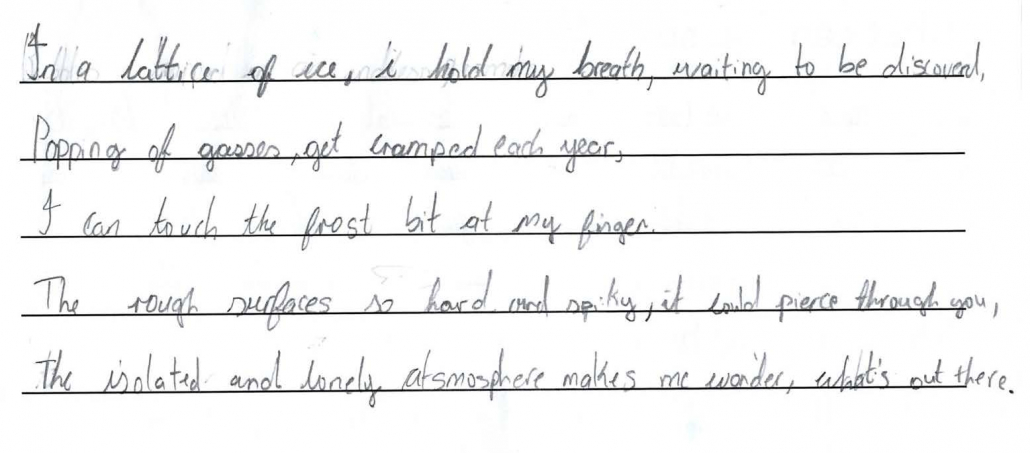 In a lattice of ice, I hold my breath, waiting to be discoverd,
Popping of gasses, get cramped each year,
I can touch the frost bit at my finger.
The rough surfaces so hard and spiky, it could pierce through you,
The isolated and lonely atsmosphere makes me wonder, what's out there.